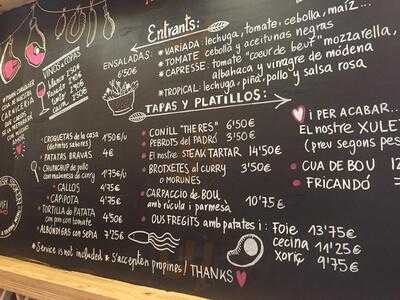 Entrants:
ENSALADAS:
6'50€
* VARIADA: lechuga, tomate, cebolla, maíz...
* TOMATE cebolla y aceitunas negras
* CAPRESSE: tomate "coeur de beuf" mozzarella,
albahaca y vinagre de modena
* TROPICAL: lechuga, piña, pollo y salsa rosa
VINOS a COPAS
TAPAS Y PLATILLOS:
CROQUETAS de la casa 1'50€/u
(distintos sabores)
PATATAS BRAVAS 4€
CHUNCHUP de pollo
con mahonesa de curry 1'75€
CALLOS 4'75€
CAP i POTA 4'75€
TORTILLA de PATATA
con pan con tomate 4'50€
ALBÓNDIGAS con SEPIA 7'25€
CONILL "THERES" 6'50€
PEBROTS del PADRÓ 3'50€
El nostre STEAK TARTAR 14'50€
BROTXETES al curry 3'50€
o MORUNES
CARPACCIO de BOU
amb rúcula i parmesà 10'75€
OUS FREGITS amb patates i:
Foie 13'75€
cecina 11'25€
xoriç 9'75€
¡ PER ACABAR...
El nostre XULE
(preu segons pes
CUA DE BOU 12
FRICANDÓ
* Service is not included * S'accepten propines! THANKS